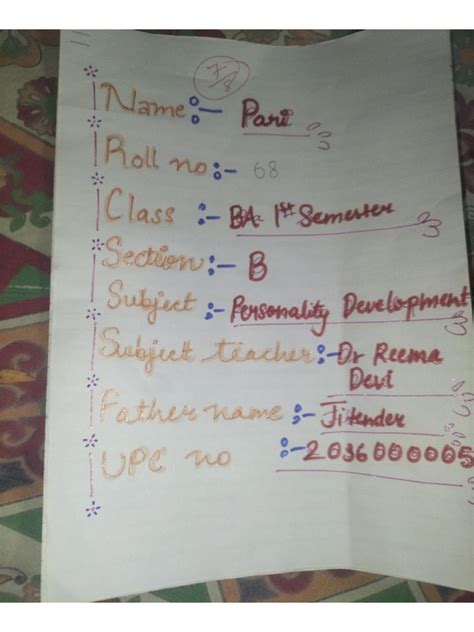 7/8
Name :- Pari
Roll no :- 68
Class :- BA 1st Semester
Section :- B
Subject :- Personality Development
Subject teacher :- Dr Reema
Devi
Father name :- Jitender
UPC no :- 2036000005